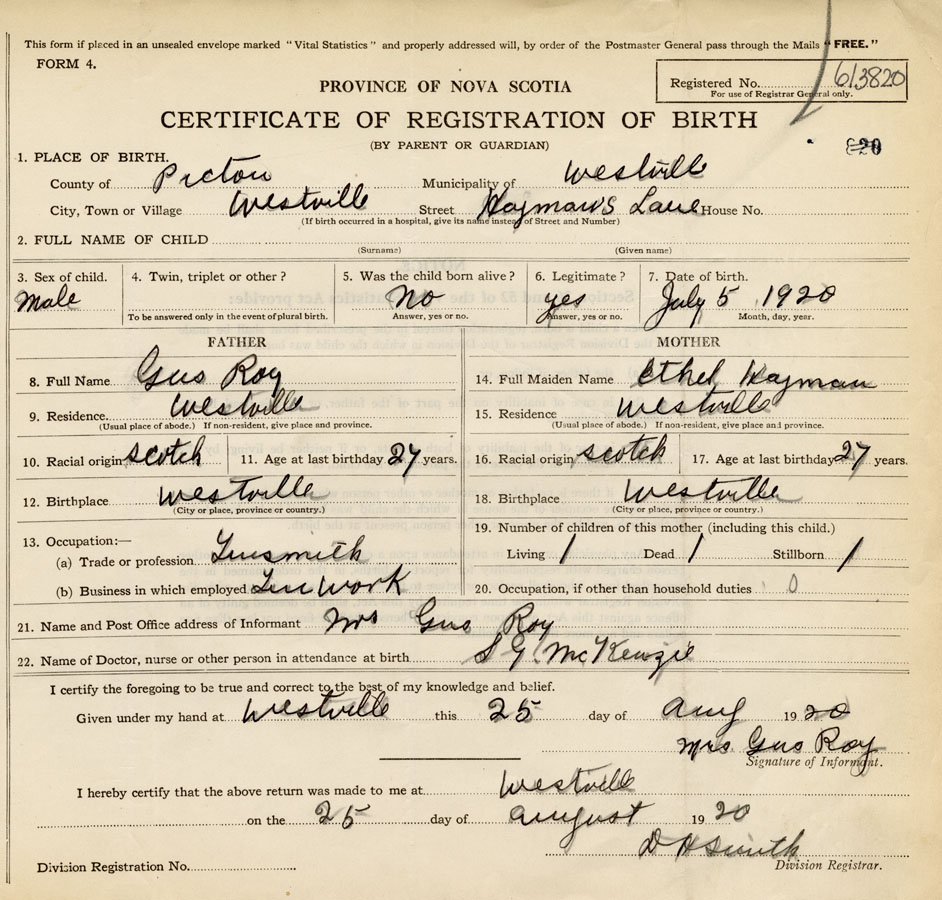 This form if placed in an unsealed envelope marked "Vital Statistics" and properly addressed will, by order of the Postmaster General pass through the Mails "FREE."
FORM 4.
PROVINCE OF NOVA SCOTIA
Registered No. 613820
For use of Registrar General only.
CERTIFICATE OF REGISTRATION OF BIRTH
(BY PARENT OR GUARDIAN)
1. PLACE OF BIRTH.
County of Pictou Municipality of Westville
City, Town or Village Westville Street Hayman's Lane House No.
(If birth occurred in a hospital, give its name instead of Street and Number)
2. FULL NAME OF CHILD
(Surname) (Given name)
3. Sex of child. 4. Twin, triplet or other? 5. Was the child born alive? 6. Legitimate? 7. Date of birth.
Male No yes July 5 1920
To be answered only in the event of plural birth. Answer, yes or no. Answer, yes or no. Month, day, year.
FATHER MOTHER
8. Full Name Gus Roy 14. Full Maiden Name Ethel Hayman
9. Residence Westville 15. Residence Westville
(Usual place of abode.) If non-resident, give place and province. (Usual place of abode.) If non-resident, give place and province.
10. Racial origin scotch 11. Age at last birthday 27 years. 16. Racial origin scotch 17. Age at last birthday 27 years.
12. Birthplace Westville 18. Birthplace Westville
(City or place, province or country.) (City or place, province or country.)
13. Occupation:— 19. Number of children of this mother (including this child.)
(a) Trade or profession Tinsmith Living 1 Dead 1 Stillborn 1
(b) Business in which employed Tin Work 20. Occupation, if other than household duties 0
21. Name and Post Office address of Informant Mrs Gus Roy
22. Name of Doctor, nurse or other person in attendance at birth S G McKenzie
I certify the foregoing to be true and correct to the best of my knowledge and belief.
Given under my hand at Westville this 25 day of Aug 1920
Mrs Gus Roy
Signature of Informant.
I hereby certify that the above return was made to me at Westville
on the 25 day of August 1920
D H Smith
Division Registration No. Division Registrar.